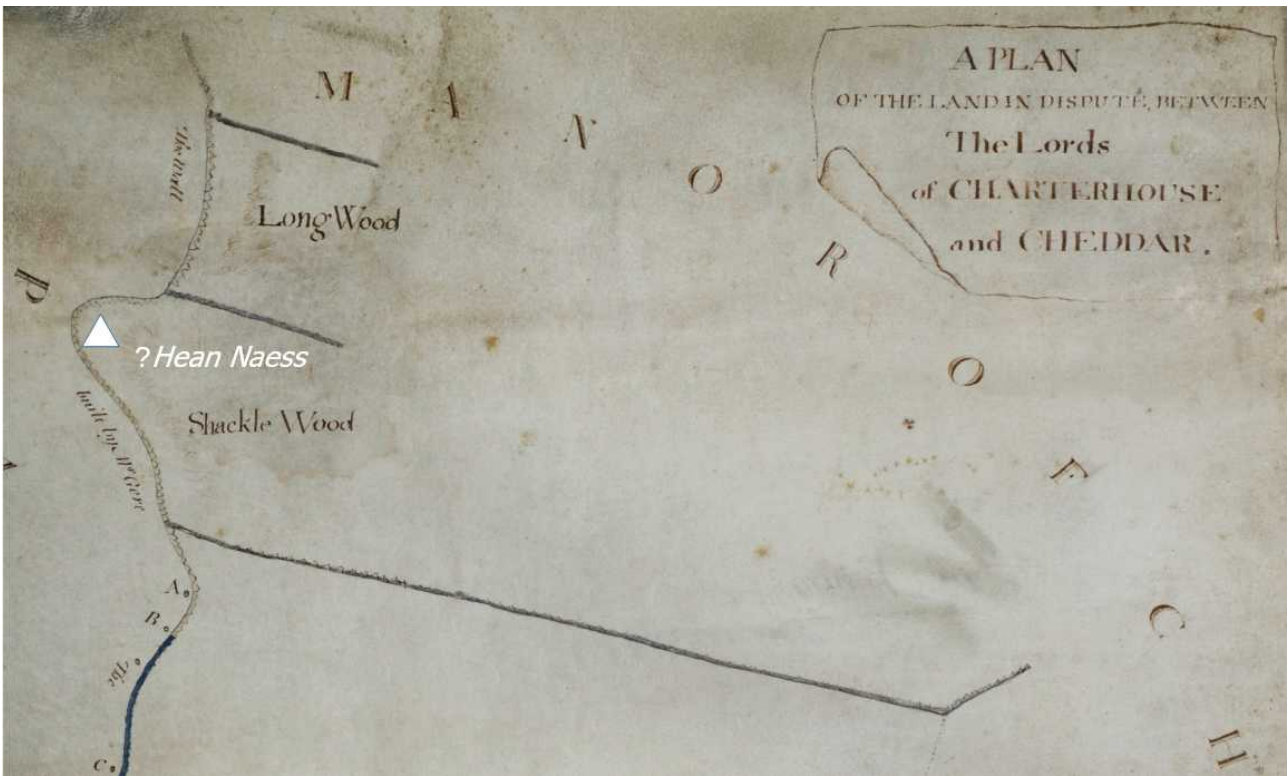 A PLAN
OF THE LAND IN DISPUTE, BETWEEN
The Lords
of CHARTERHOUSE
and CHEDDAR.
MANOR OF CH
The Wall
Long Wood
P
?Hean Naess
Shackle Wood
built by Mr Gore
A
B
The
C